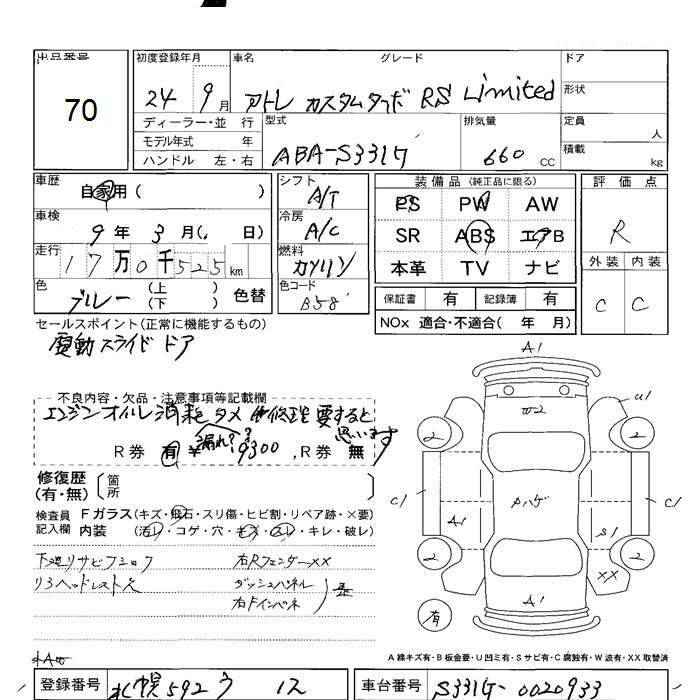 出品番号 初度登録年月 車名 グレード ドア
70 24 9月 アトレー カスタムターボ RS Limited 形状
ディーラー・並 行 型式 排気量 定員 人
モデル年式 年 ABA-S331G 660 CC 積載 kg
ハンドル 左・右
車歴 自家用( ) シフト A/T 装備品(純正品に限る) 評価点
車検 9年 3月( 日) 冷房 A/C PS PW AW R
走行 17万0千525km 燃料 ガソリン SR ABS エアB 外装 内装
色 ブルー (上)(下) 色替 色コード B58 本革 TV ナビ C C
保証書 有 記録簿 有
NOx 適合・不適合( 年 月)
セールスポイント(正常に機能するもの)
電動スライドドア
不良内容・欠品・注意事項等記載欄
エンジンオイル消耗タメ 修理要すると
思います
漏れ??
R券 有 ¥9300 , R券 無
修復歴 (有・無) 箇所
検査員 Fガラス(キズ・飛石・スリ傷・ヒビ割・リペア跡・×要)
記入欄 内装 (汚レ・コゲ・穴・キズ・スレ・キレ・破レ)
下廻リサビフショク 右Rフェンダーxx
リヤヘッドレスト欠 ダッシュパネル
右Fインパネ
A1
W2 U1
2 2
C1 メハゲ C1
A1 S1
2 2
XX
A1
有
A 線キズ有・B 板金要・U 凹ミ有・S サビ有・C 腐蝕有・W 波有・XX 取替済
登録番号 札幌592 ウ 12 車台番号 S331G-0020933